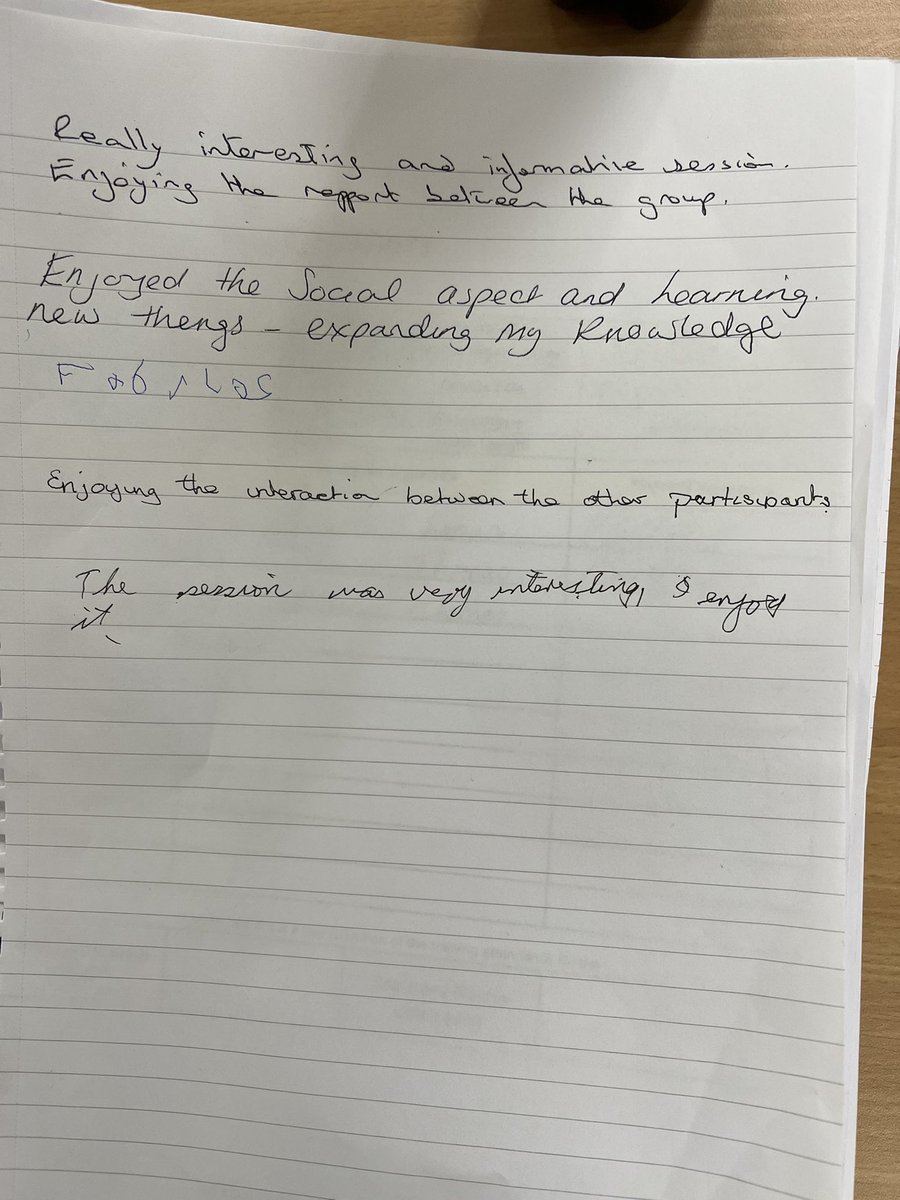 Really interesting and informative session.
Enjoying the rapport between the group.
Enjoyed the Social aspect and Learning.
new things - expanding my Knowledge
Enjoying the interaction between the other participants
The session was very interesting, I enjoy
it